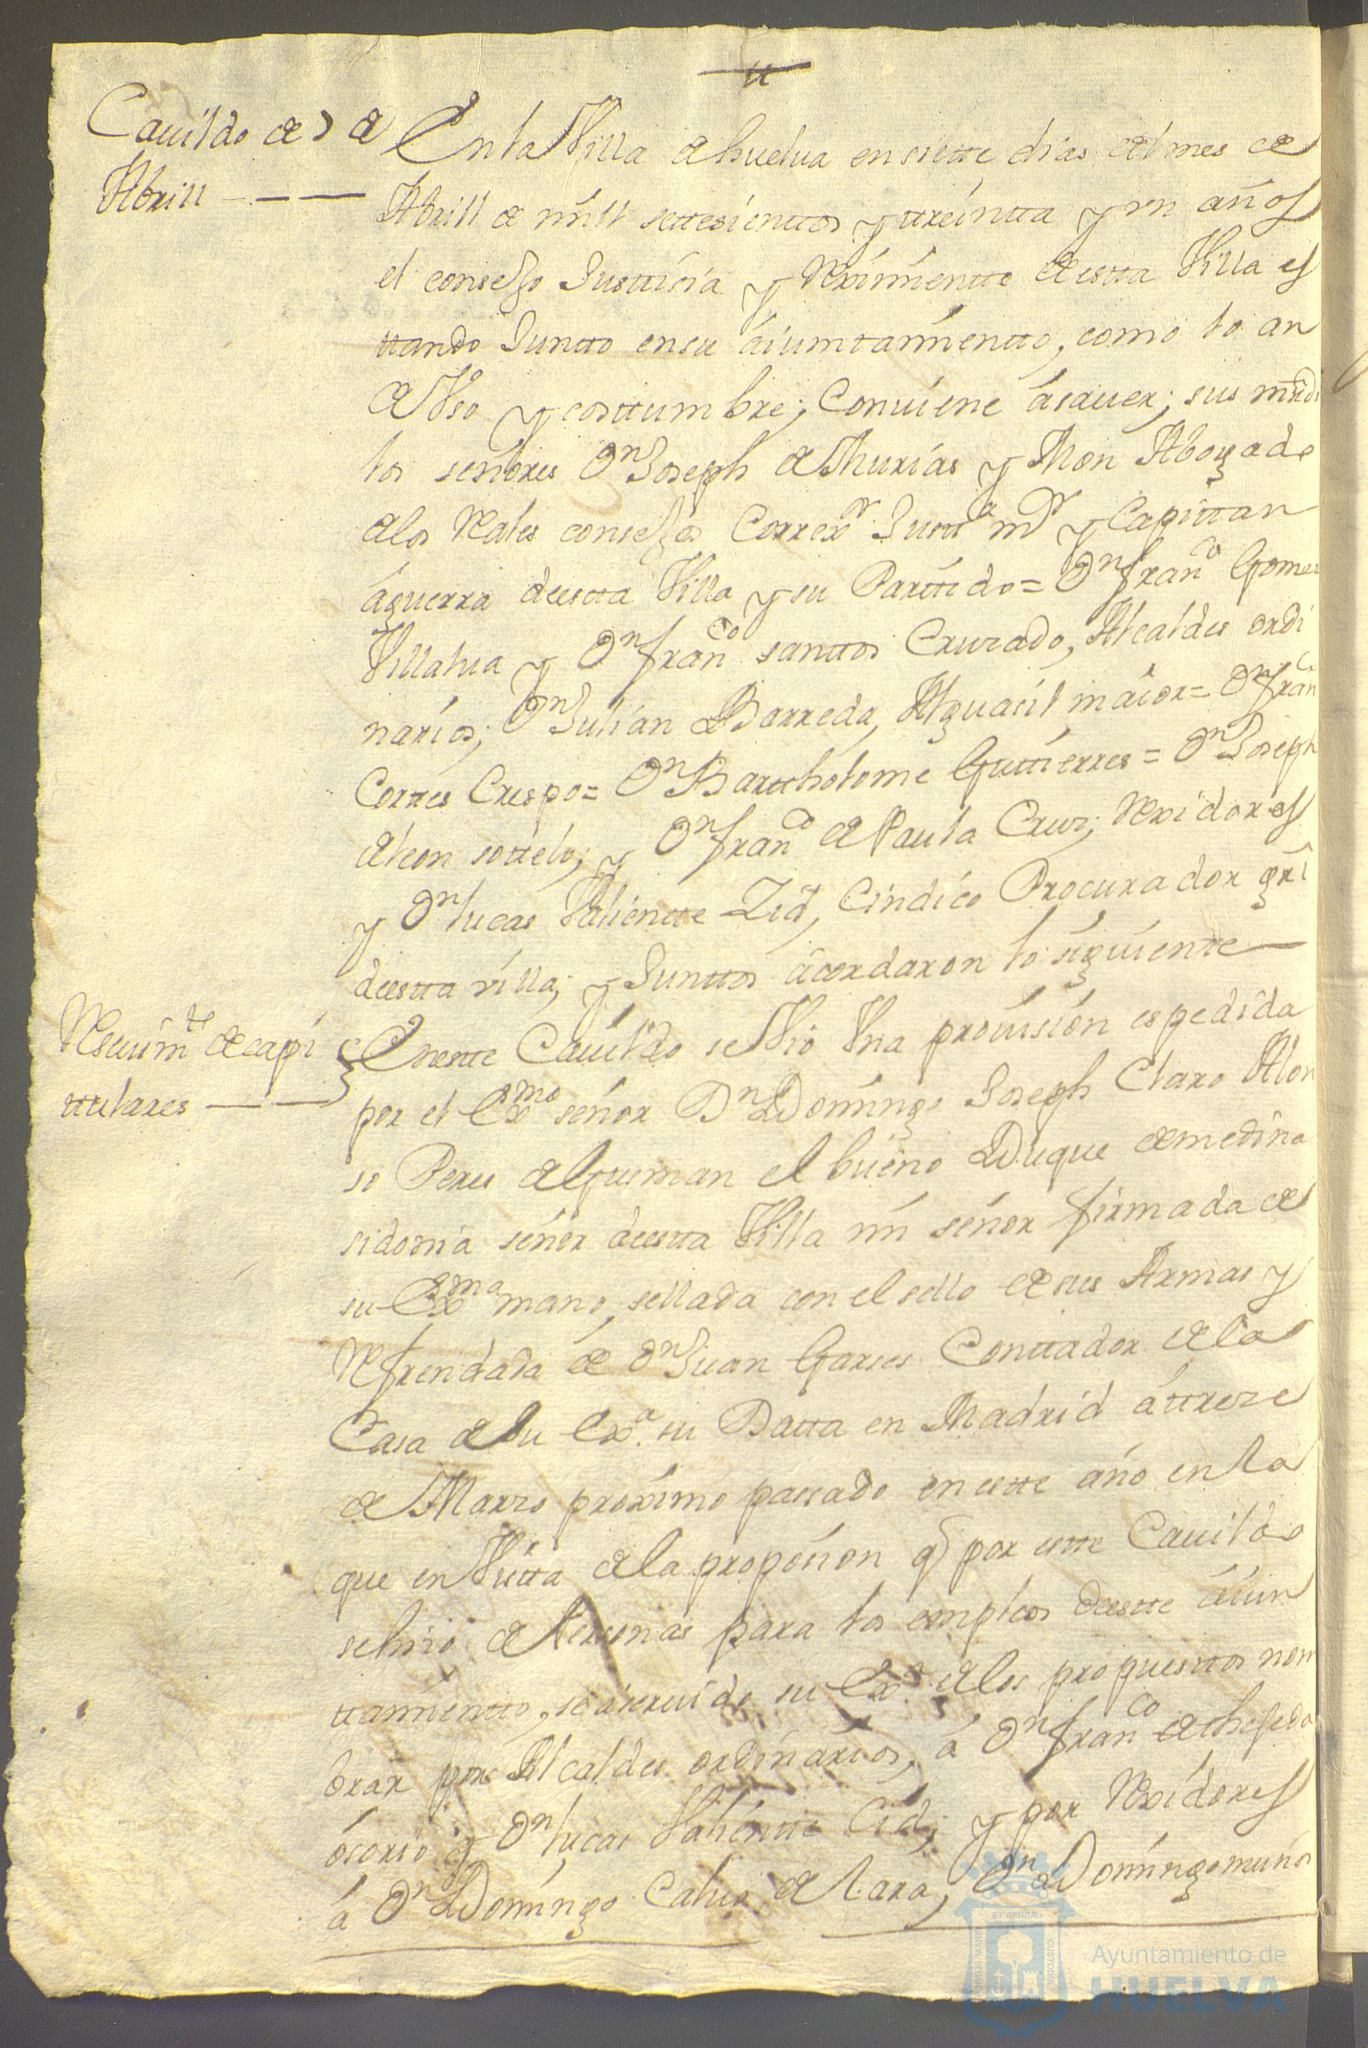 Cavildo de 7 de
Abrill
En la Villa de huelva en siette dias del mes de
Abrill de mill settesienttos y ttreintta y un años
el consejo Justticia y Reximientte de estta Villa es
ttando Juntto en su aiumtamientto, como lo an
de Vso y costtumbre; Conviene asaver; sus mrds
los señores Dn Joseph de Murias y Mon Abogado
de los Rales consejos Correxor Justta mr y Capittan
aguerra de estta Villa y su Parttido= Dn franco Gomes
Villalva y Dn franco santtos Cruzado, Alcaldes ordi
narios; Dn Julian de Barreda, Alguacil maior= Dn franco
Corttes Crespo= Dn Barttholome Guttierres= Dn Joseph
de leon sottelo; y Dn franco de Paula Cruz; Rexidores
y Dn lucas Valientte Zid, Cindico Procurador grl
de estta villa; y Junttos acordaron lo siguientte
Resevimto de capi
ttulares
En este Cavildo se Vio Vna provision espedida
por el Exmo señor Dn Domingo Joseph Claro Alon
so Peres de Gusman el bueno Duque de medina
sidonia señor de estta Villa mi señor firmada de
su Exma mano, sellada con el sello de sus Armas y
Refrendada de Dn Juan Garses Conttador de la
Casa de Su Exa. su Datta en Madrid a ttreze
de Marzo proximo passado en estte año en la
que en Vistta de la proposision q por estte Cavildo
se hizo de Personas para los empleos de estte aiun
ttamientto, se a servido su Exa. de los propuesttos nom
brar por Alcaldes ordinarios, a Dn franco de thejeda
osorio y Dn lucas Valientte Cid; y por Rexidores
a Dn Domingo Calvo de Lara, Dn Domingo muños
Ayuntamiento de
HUELVA